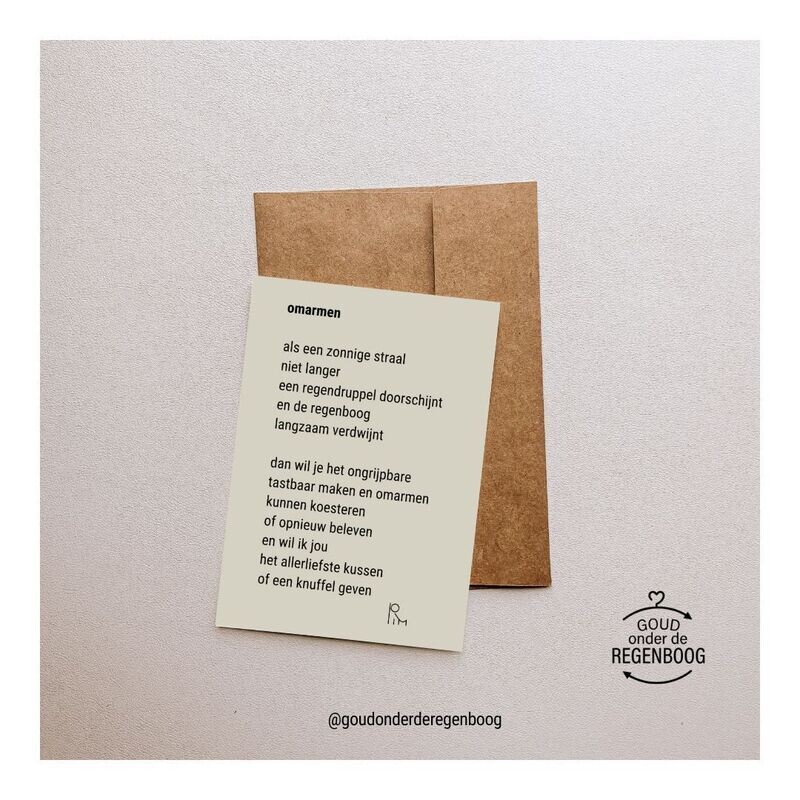 omarmen
als een zonnige straal
niet langer
een regendruppel doorschijnt
en de regenboog
langzaam verdwijnt
dan wil je het ongrijpbare
tastbaar maken en omarmen
kunnen koesteren
of opnieuw beleven
en wil ik jou
het allerliefste kussen
of een knuffel geven
GOUD
onder de
REGENBOOG
@goudonderderegenboog